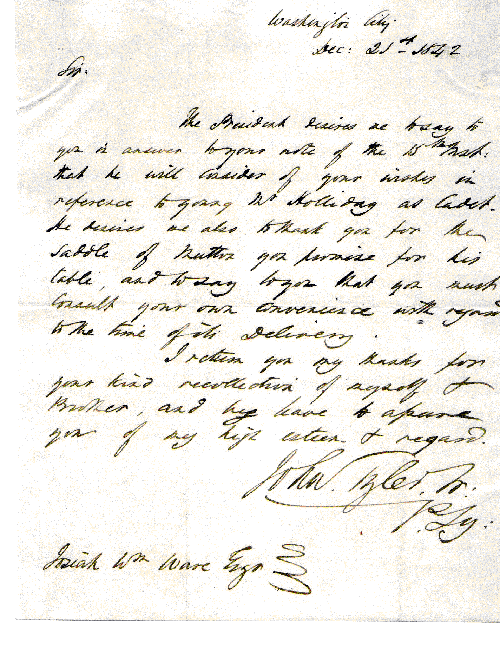 Washington City
Dec: 21st 1842
Sir.
The President desires me to say to
you in answer to your note of the 15th Inst:
that he will consider of your wishes in
reference to young Mr Holliday as Cadet.
He desires me also to thank you for the
Saddle of Mutton you promise for his
table, and to say to you that you must
Consult your own Convenience with regard
to the time of its Delivery.
I return you my thanks for
your kind recollection of myself &
Brother, and beg leave to assure
you of my high esteem & regard.
John Tyler, Jr.
P. Sy.
Josiah Wm Ware Esqr